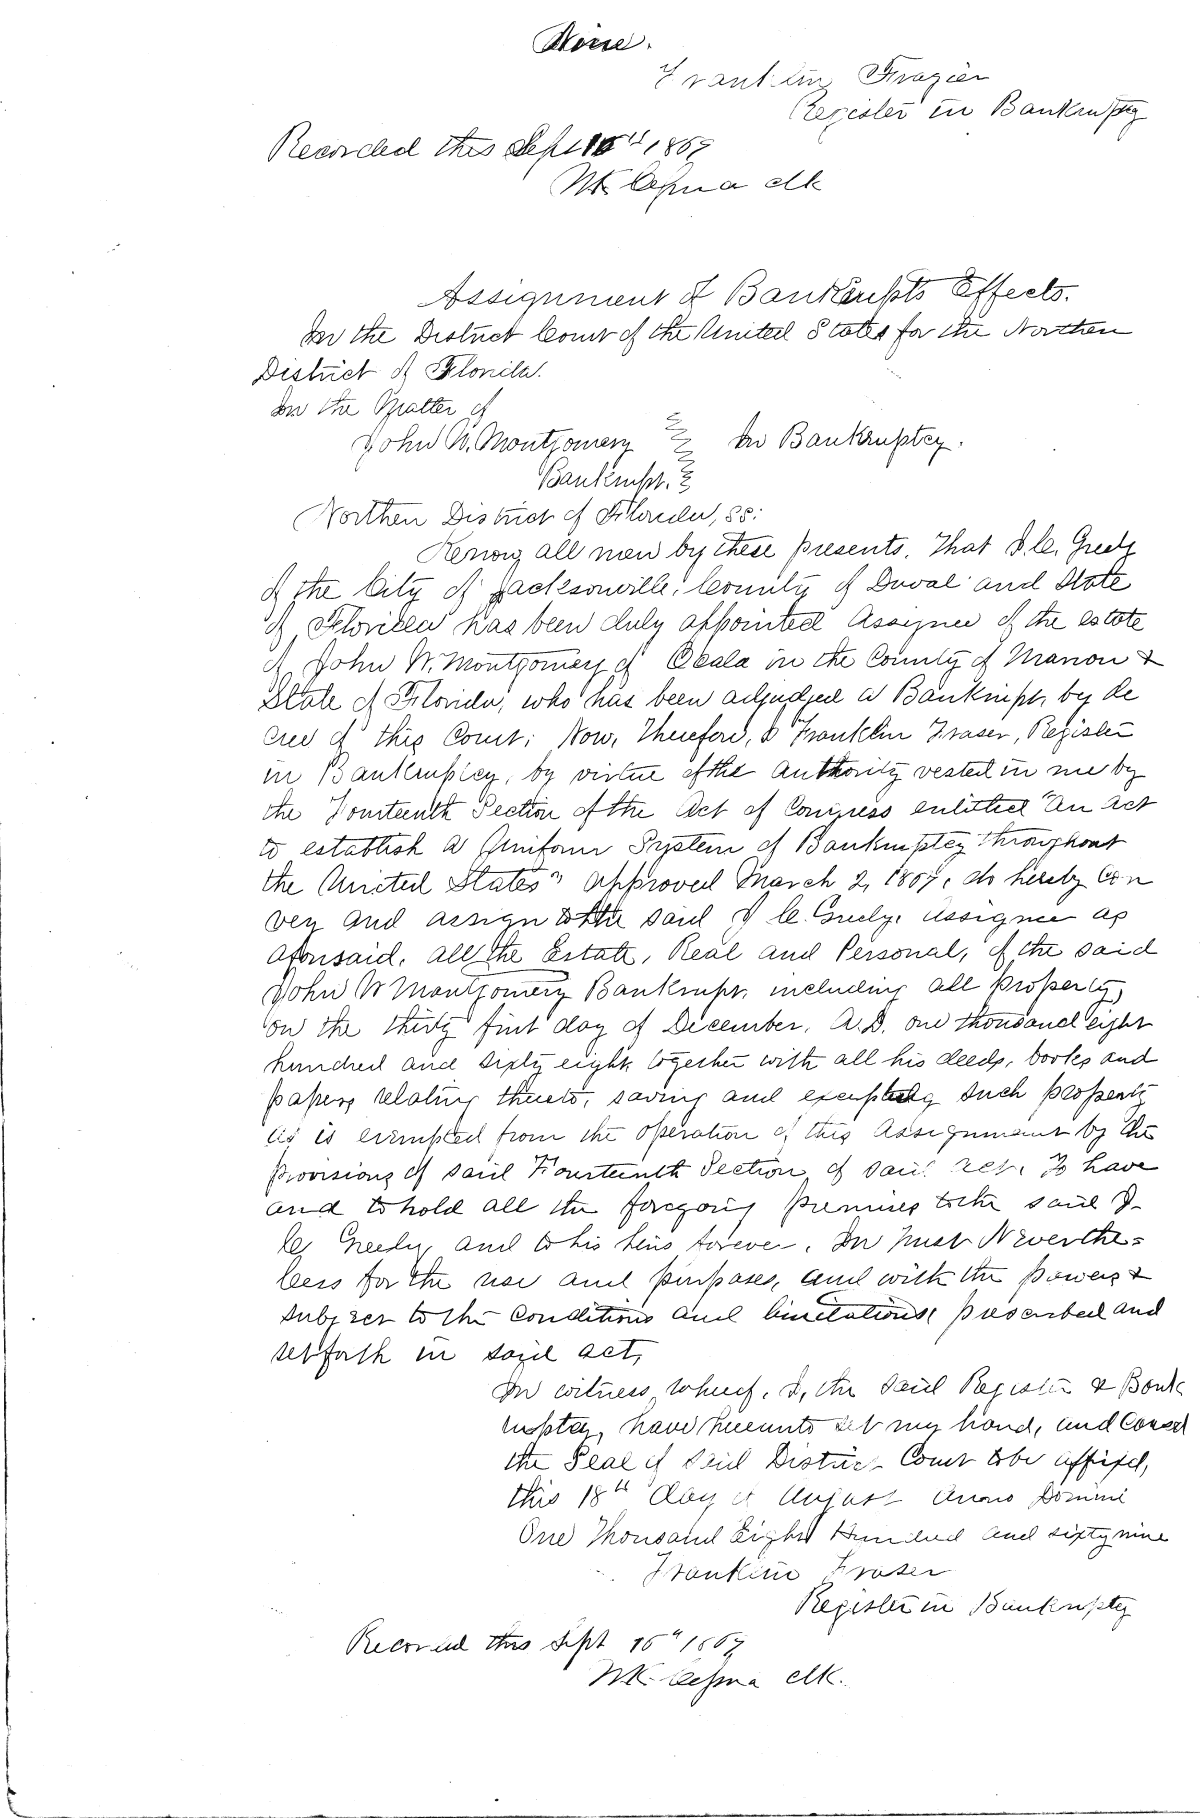 Nine.
Franklin Frazier
Register in Bankruptcy
Recorded this Sept 15th 1869
Clk
Assignment of Bankrupts Effects.
In the District Court of the United States for the Northen
District of Florida.
In the Matter of
John W. Montgomery In Bankruptcy.
Bankrupt.
Northen District of Florida, SS:
Know all men by these presents. That J. C. Greely
of the City of Jacksonville, County of Duval and State
of Florida has been duly appointed Assignee of the estate
of John W. Montgomery of Ocala in the County of Marion &
State of Florida, who has been adjudged a Bankrupt, by De
cree of this Court; Now, Therefore, I Franklin Fraser, Register
in Bankruptcy, by virtue of the Authority vested in me by
the Fourteenth Section of the Act of Congress entitled "An Act
to establish a Uniform System of Bankruptcy throughout
the United States" approved March 2, 1867, do hereby Con
vey and assign to the said J C. Greely, Assignee as
aforesaid, all the Estate, Real and Personal, of the said
John W Montgomery Bankrupt, including all property,
on the thirty first day of December, A.D. one thousand eight
hundred and sixty eight together with all his deeds, books and
papers relating thereto, saving and excepting such property
as is exempted from the operation of this Assignment by the
provisions of said Fourteenth Section of said act. To have
and to hold all the foregoing premises to the said J.
C. Greely, and to his heirs forever. In trust Neverthe=
less for the use and purposes, and with the powers &
subject to the conditions and limitations prescribed and
set forth in said act,
In witness whereof, I, the said Register & Bank
ruptcy, have hereunto set my hand, and caused
the Seal of said District Court to be affixed,
this 18th day of August Anno Domini
One Thousand Eight Hundred and sixty nine
Franklin Fraser
Register in Bankruptcy
Recorded this Sept 15th 1869
Clk.